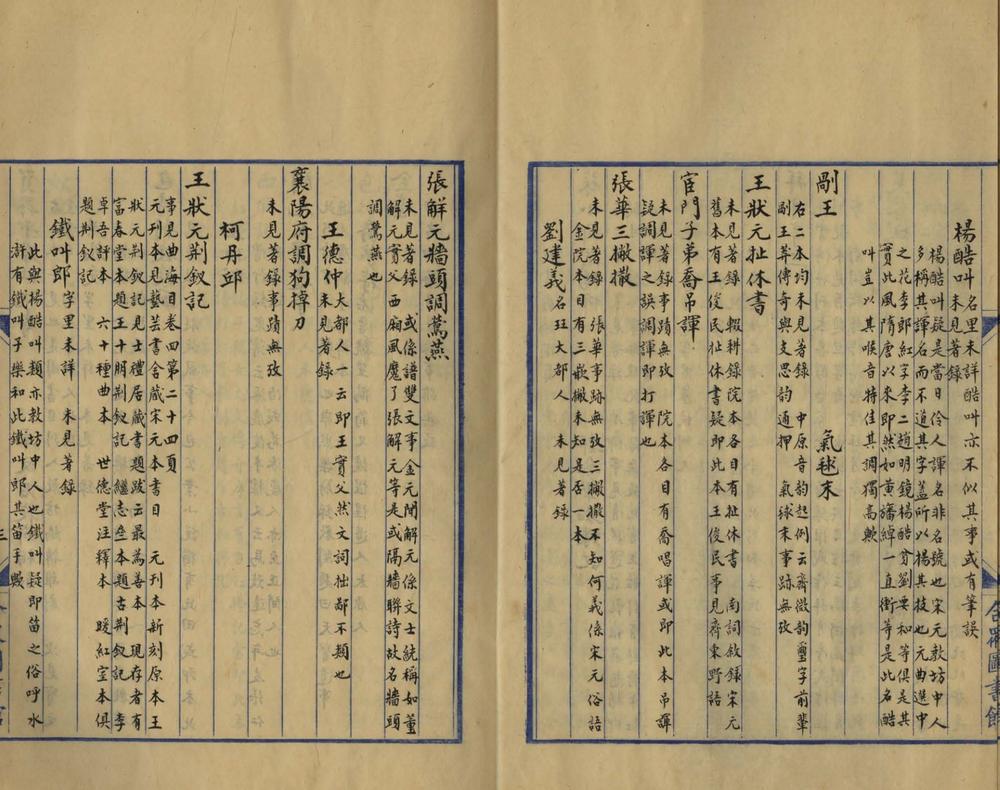 楊酷叫 名里未詳酷叫亦不似其事或有筆誤
未見著錄
楊酷叫疑是當日伶人諢名非名號也宋元教坊中人
多稱其諢名而不道其字蓋所以楊其技也元曲選中
之花李郎紅字李二趙明鏡楊酷劉耍和等俱是其
實此風隋唐以來即然如黃旛綽一直衝等是此名酷
叫豈以其喉音特佳其調獨高歟
剮王 氣毬末
右二本均未見著錄 中原音韵起例云齊微韵璽字前輩
剮王莽傳奇與支思韵通押 氣毬末事跡無攷
王狀元扯休書
未見著錄 輟耕錄院本各目有扯休書 南詞敘錄宋元
舊本有王俊民扯休書疑即此本王俊民事見齊東野語
宦門子弟喬吊諢
未見著錄事蹟無攷 院本各目有喬唱諢或即此本吊諢
疑調諢之誤調諢即打諢也
張華三撇撒
未見著錄 張華事跡無攷三撇撒不知何義係宋元俗語
金院本目有三撒未知是否一本
劉建義 名珏大都人 未見著錄
張解元牆頭調鶯燕
未見著錄 或係諸雙文事金元間解元係文士統稱如董
解元實父西廂風魔了張解元等是或隔牆聯詩故名牆頭
調鶯燕也
王德仲 大都人一云即王實父然文詞拙鄙不類也
未見著錄
襄陽府調狗掉刀
未見著錄事蹟無攷
柯丹邱
王狀元荆釵記
事見曲海目卷四第二十四頁
元刊本見藝芸書舍藏宋元本書目 元刊本新刻原本王
狀元荆釵記見士禮居藏書題跋云最為善本 現存者有
富春堂本題王十朋荆釵記 繼志叁本題古荆釵記 李
卓吾評本 六十種曲本 世德堂注釋本 暖紅室本俱
題荆釵記
鐵叫郎 字里未詳 未見著錄
此與楊酷叫類亦教坊中人也鐵叫疑即笛之俗呼水
許有鐵叫子樂和此鐵叫郎其笛手歟
三
圖書館